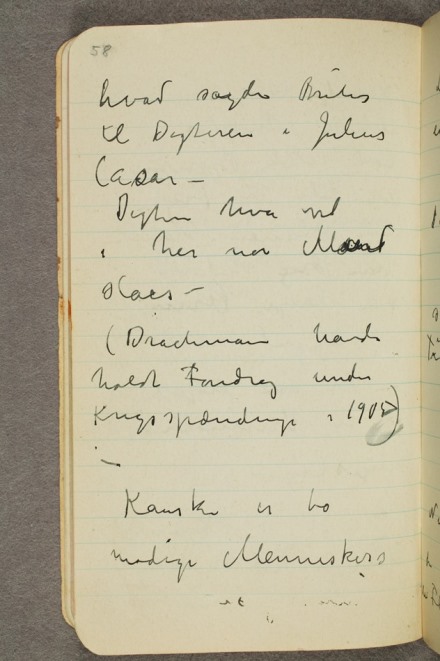 58
hvad sagde Brutus
til Digteren i Julius
Cæsar –
Digter hva vil
i her nar Mænd
slaes –
(Drachmann havde
holdt Foredrag under
Krigsspændinge i 1905)
–
Kanske er to
modige Menneskers